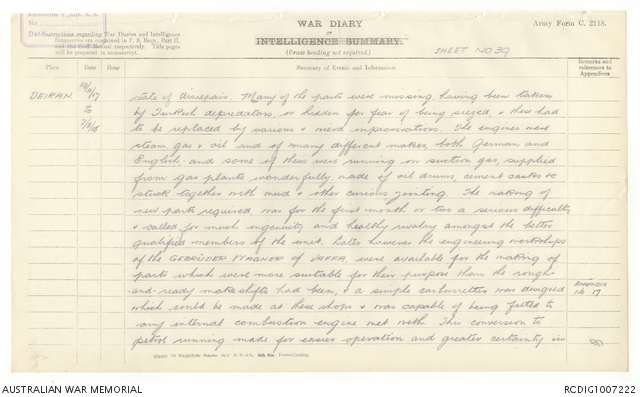 WAR DIARY
or
INTELLIGENCE SUMMARY.
(Erase heading not required).
Army Form C. 2118.
SHEET NO 39
No.
Instructions regarding War Diaries and Intelligence
Summaries are contained in F. S. Regs., Part II.
and the Staff Manual respectively. Title pages
will be prepared in manuscript.
Place
Date
Hour
Summary of Events and Information
Remarks and
references to
Appendices
DEIRAN.
to
state of disrepair. Many of the parts were missing, having been taken
by Turkish depredators, or hidden for fear of being seized, & these had
to be replaced by various & weird improvisations. The engines were
steam, gas & oil and of many different makes, both German and
English and some of these were running on suction gas, supplied
from gas plants wonderfully made of oil drums, cement casks &c
stuck together with mud & other curious jointing. The making of
new parts required was for the first month or two a serious difficulty
& called for much ingenuity and healthy rivalry amongst the better
qualified members of the unit. Later however the engineering workshops
of the GEBRÜDER WAGNER of JAFFA, were available for the making of
parts which were more suitable for their purpose than the rough-
and-ready makeshifts had been, & a simple carburetter was designed
which could be made at these shops & was capable of being fitted to
any internal combustion engine met with. This conversion to
petrol running made for easier operation and greater certainty in
APPENDIX
17
AUSTRALIAN WAR MEMORIAL
RCDIG1007222